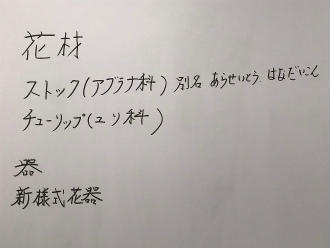 花材
ストック(アブラナ科) 別名 あらせいとう. はなだいこん
チューリップ(ユリ科)
器
新様式花器